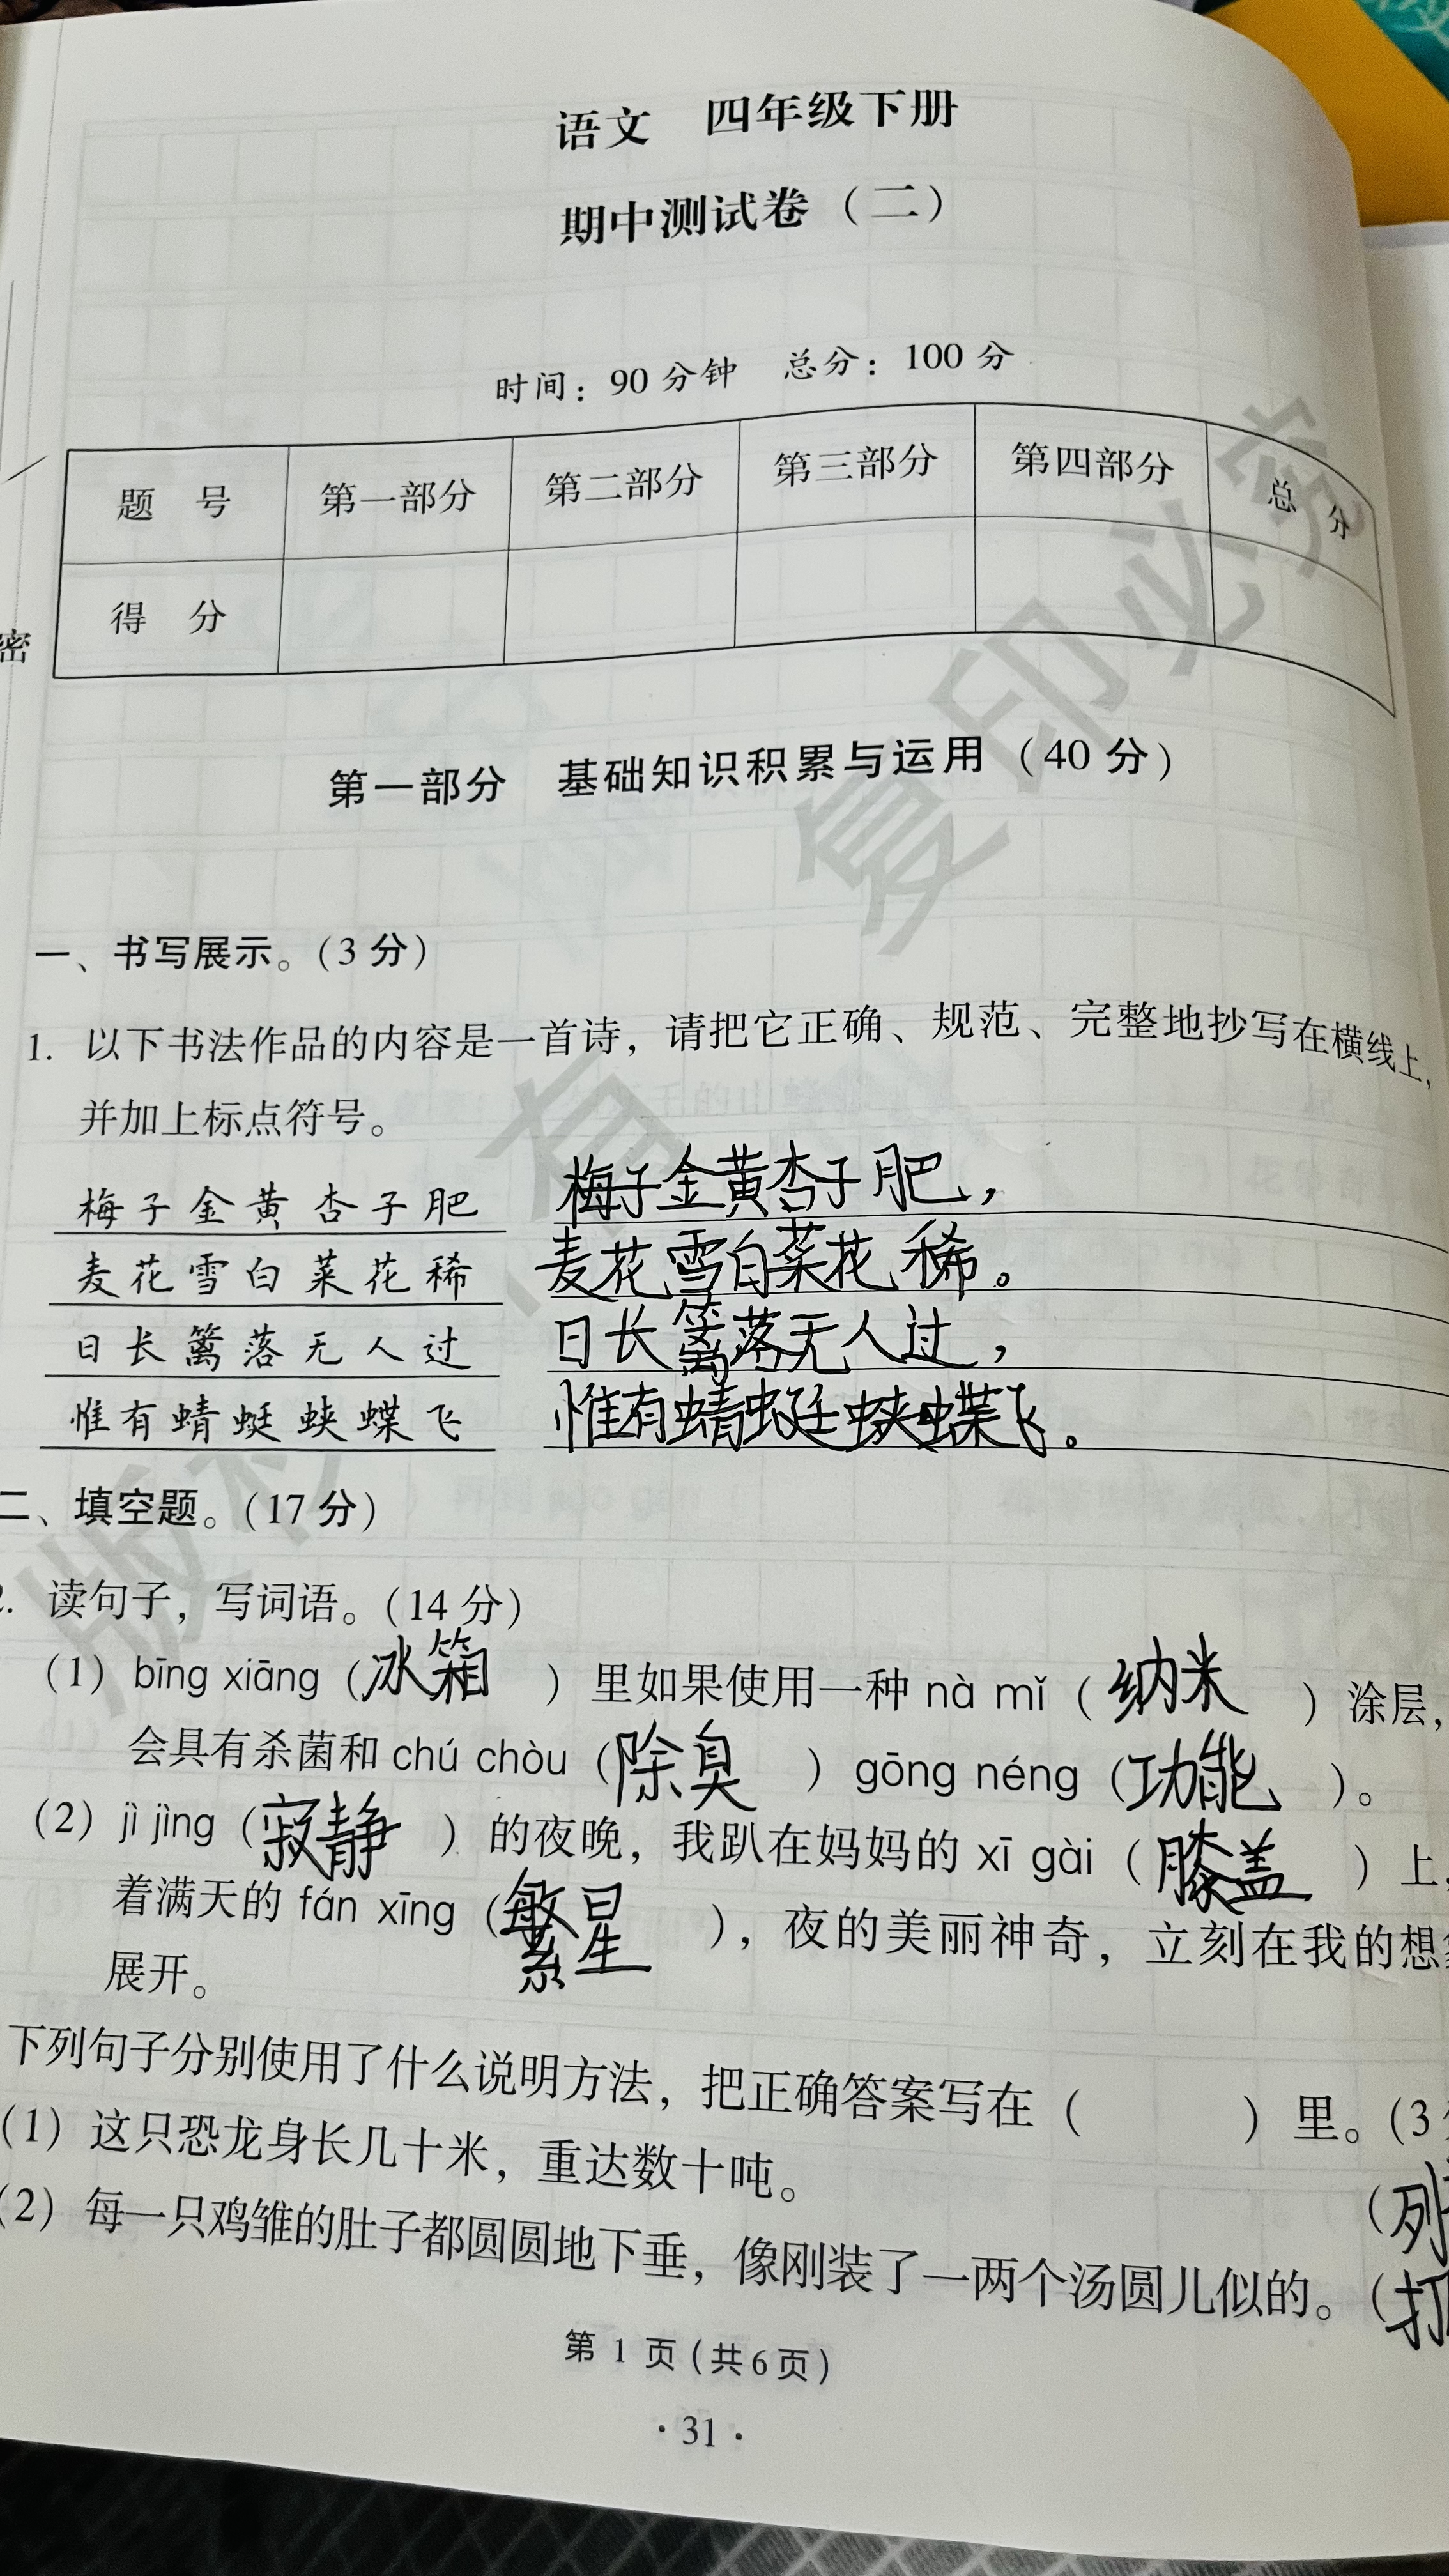 语文 四年级下册
期中测试卷（二）
时间：90 分钟 总分：100 分
题 号 第一部分 第二部分 第三部分 第四部分 总 分
得 分
密
第一部分 基础知识积累与运用（40 分）
一、书写展示。（3 分）
1. 以下书法作品的内容是一首诗，请把它正确、规范、完整地抄写在横线上，
并加上标点符号。
梅子金黄杏子肥 梅子金黄杏子肥，
麦花雪白菜花稀 麦花雪白菜花稀。
日长篱落无人过 日长篱落无人过，
惟有蜻蜓蛱蝶飞 惟有蜻蜓蛱蝶飞。
二、填空题。（17 分）
2. 读句子，写词语。（14 分）
（1）bīng xiāng（冰箱）里如果使用一种 nà mǐ（纳米）涂层，
会具有杀菌和 chú chòu（除臭）gōng néng（功能）。
（2）jì jìng（寂静）的夜晚，我趴在妈妈的 xī gài（膝盖）上，
着满天的 fán xīng（繁星），夜的美丽神奇，立刻在我的想
展开。
下列句子分别使用了什么说明方法，把正确答案写在（ ）里。（3
（1）这只恐龙身长几十米，重达数十吨。
（列
（2）每一只鸡雏的肚子都圆圆地下垂，像刚装了一两个汤圆儿似的。（打
第 1 页（共 6 页）
· 31 ·
版权所有 复印必究